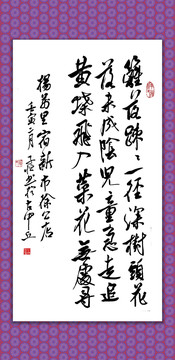 籬落疎々一徑深樹頭花
落未成陰兒童急走追
黄蝶飛入菜花無處尋
楊萬里宿新市徐公店
壬寅二月书於古中丘